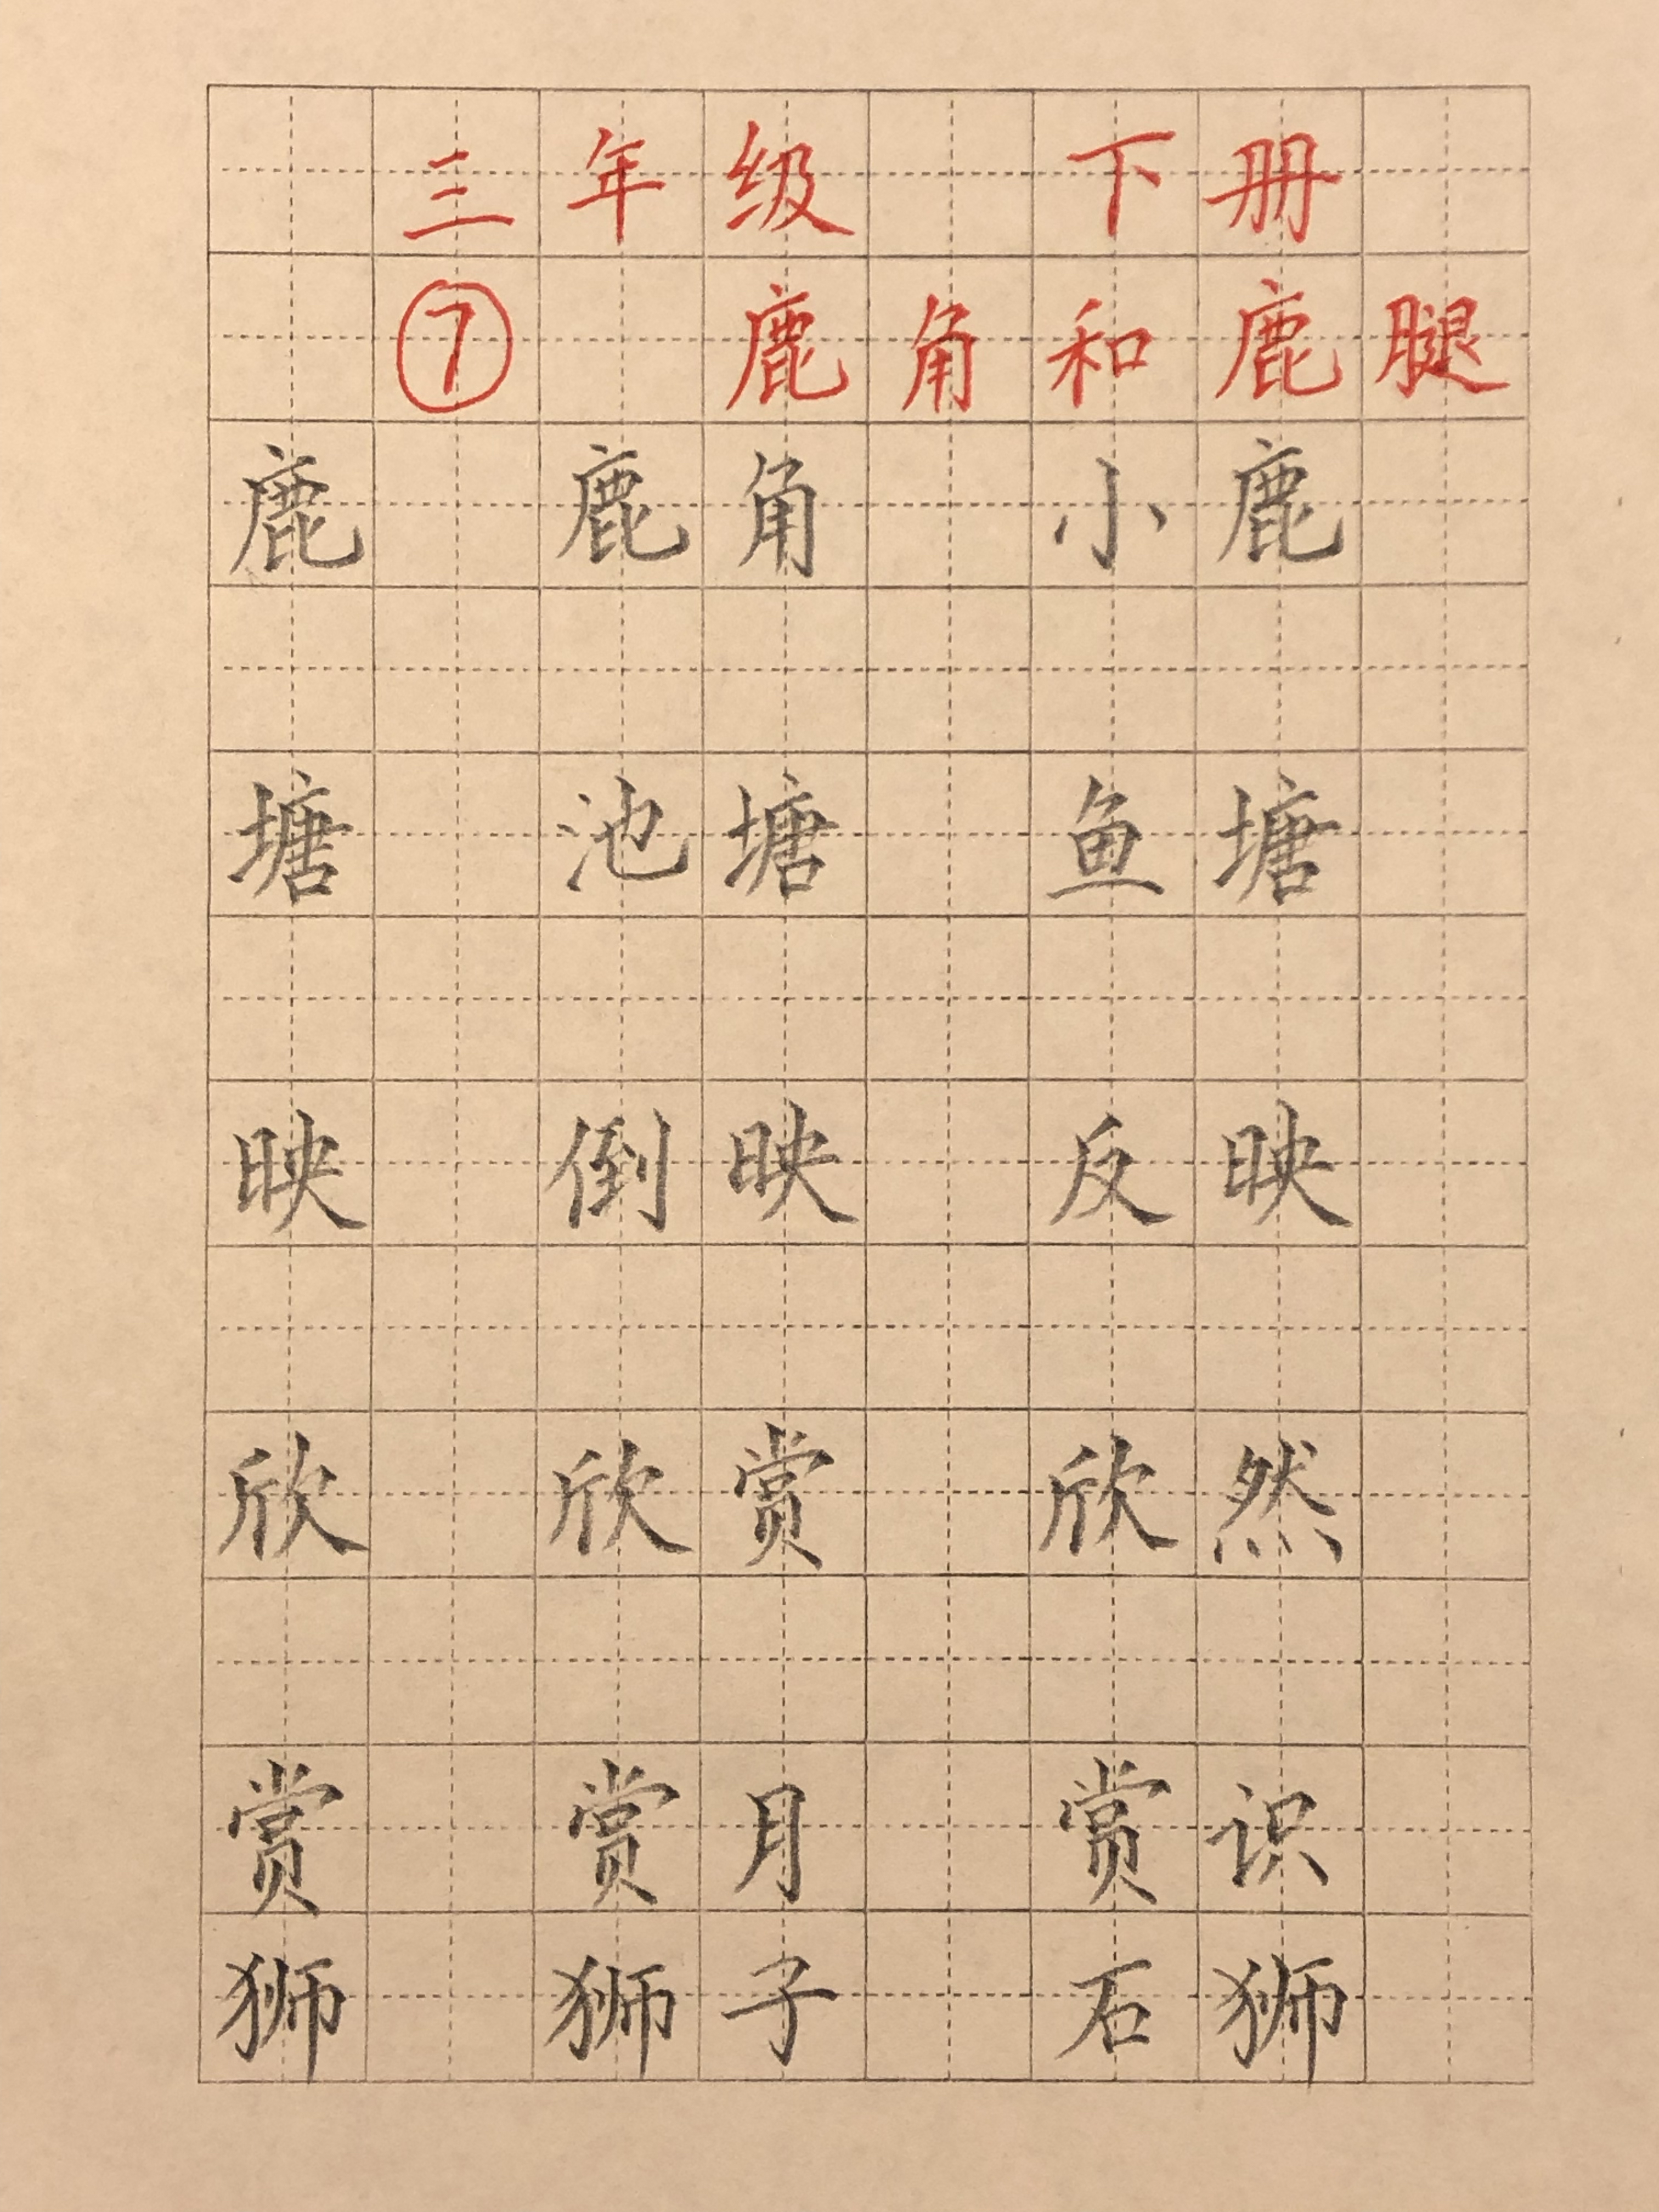 三年级 下册
⑦ 鹿角和鹿腿
鹿 鹿角 小鹿
塘 池塘 鱼塘
映 倒映 反映
欣 欣赏 欣然
赏 赏月 赏识
狮 狮子 石狮